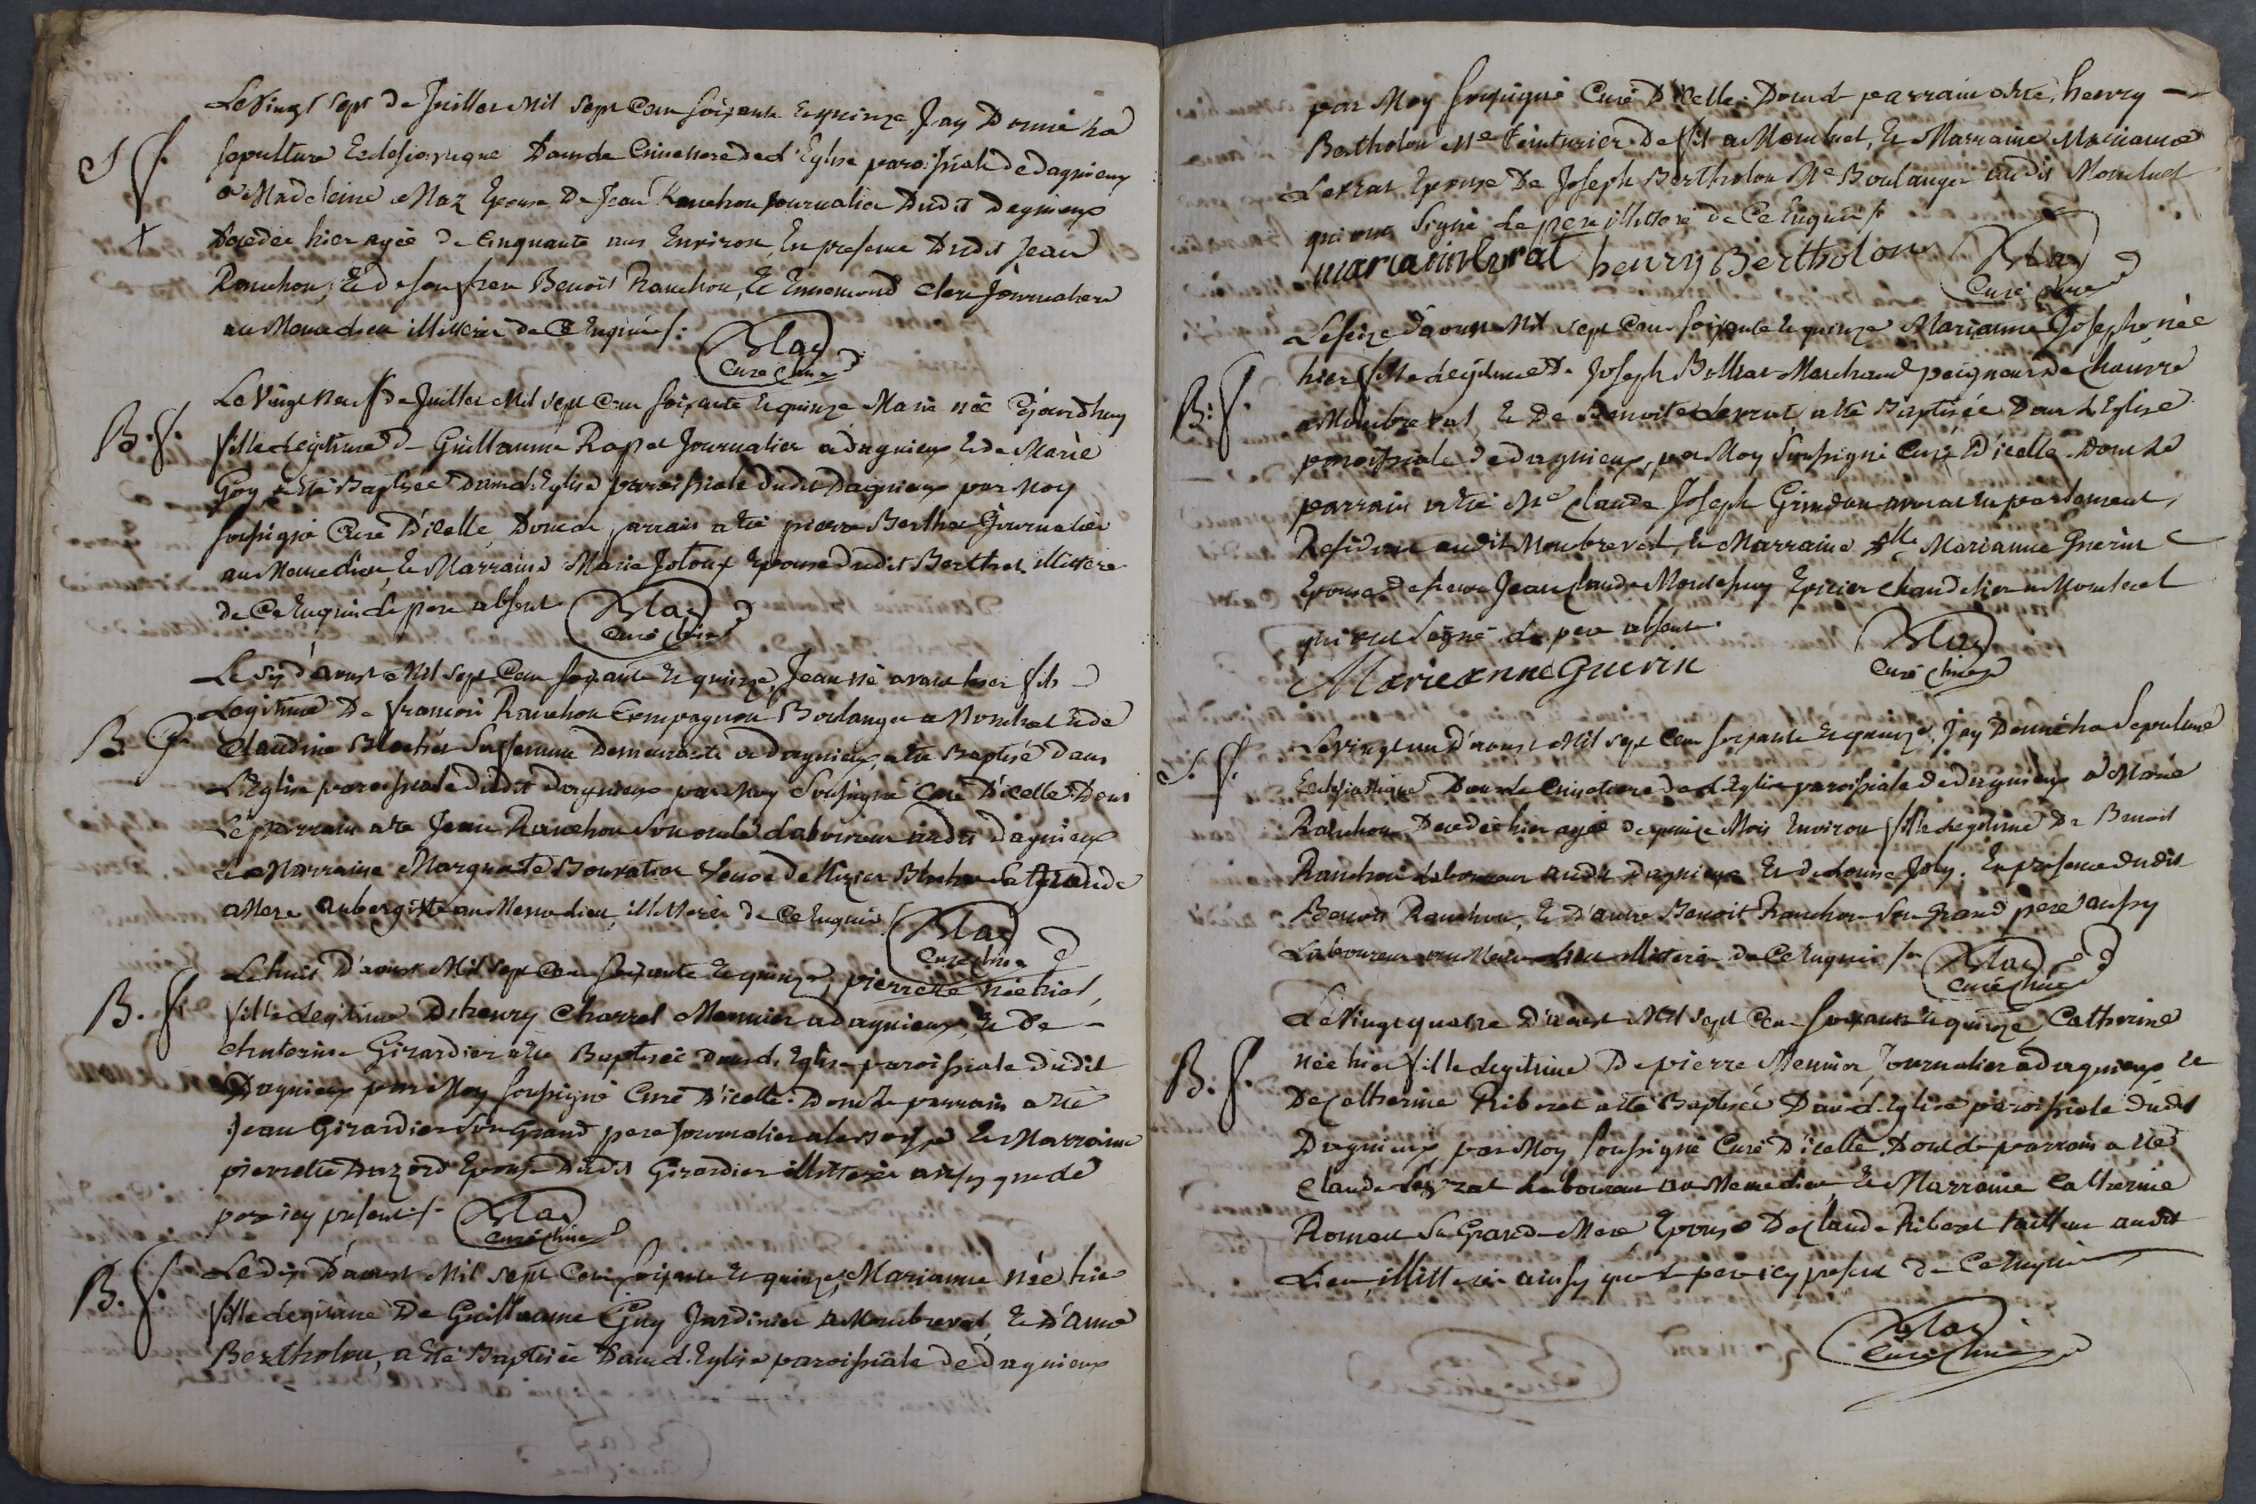 Le vingt sept de Juillet Mil sept Cent soixante et quinze J'ay Donné la
S f. sepulture Eclesiastique Dans le Cimettere de l'Eglise paroissiale de dagnieux
a Madeleine Maz Epouse De Jean Ranchon Journalier Dudit Dagnieux
+ Decedée hier agée de Cinquante ans Environ, En presence Dudit Jean
Ranchon, Et de son frere Benoit Ranchon, Et Ennemond clere Journaliers
au Meme dieu illitteres de Ce Enquis /:
Blas
Curé
Le Vingt neuf de Juillet Mil sept Cent soixante et quinze Marie née Ejourdhuy
B. f. fille legitime de Guillaume Rapet Journalier a dagnieux, et de Marie
Goy a eté Baptisée Dans l'Eglise paroissiale dudit Dagnieux par Moy
soussigné Curé D'icelle, Dont le parrain a eté pierre Berthet Journalier
au Meme dieu, et Marraine Marie Joloux Epouse dudit Berthet illittere
de Ce Enquis le pere absent
Blas
Curé
Le six d'aoust Mil sept Cent soixante et quinze, Jean né avant hier fils
Legitime De francois Ranchon Compagnon Boulanger a Monluel et de
B. f. Claudine Blachier sa femme Demeurante a dagnieux, a eté Baptisé dans
L'Eglise paroissiale dudit dagnieux par Moy soussigné Curé D'icelle Dont
Le parrain a eté Jean Ranchon son oncle laboureur audit dagnieux
Et Marraine Marguerite Bouvatier veuve de Blachier sa grande
Mere aubergiste au Meme dieu, illitterés de Ce Enquis /.
Blas
Curé
Le huit D'aoust Mil sept Cent soixante et quinze, pierrette née hier,
B. f. fille legitime De henry Charrel Meunier a dagnieux, et De
Girardier a eté Baptisée dans l'Eglise paroissiale dudit
Dagnieux par Moy soussigné Curé D'icelle. Dont le parrain a eté
Jean Girardier son Grand pere Journalier a et Marraine
pierrette Epouse Dudit Girardier illitterés ainsy que le
pere icy present /.
Blas
Curé
Le dix D'aoust Mil sept Cent soixante et quinze, Marianne née hier
B. f. fille legitime De Guillaume Guy Jardinier a Monbreval, Et D'anne
Bertholon, a eté Baptisée Dans l'Eglise paroissiale de dagnieux
par Moy soussigné Curé D'icelle. Dont le parrain a eté henry
Bertholon Me Teinturier De a Monluel, Et Marraine Marianne
Levrat Epouse De Joseph Bertholon Me Boulanger audit Monluel
qui ont signé le pere illitteré de Ce Enquis /.
mariann levrat henry Bertholon
Blas
Curé
Le seize d'aoust Mil sept Cent soixante et quinze Marianne Josephe née
hier fille legitime De Joseph Bolliat Marchand peigneur de Chanvre
B. f. a Monbreval et De Benoite Levrat a eté Baptisée Dans l'Eglise
paroissiale de dagnieux, par Moy soussigné Curé D'icelle. Dont Le
parrain a eté Me Claude Joseph Grindon avocat En parlement,
Residant audit Monbreval, Et Marraine Dlle Marianne Guerin
Epouse de sieur Jean Claude Epicier chandelier a Monluel
qui ont Signé le pere absent.
Marieanne Guerin
Blas
Curé
Le vingt un d'aoust Mil sept Cent soixante et quinze, J'ay Donné la Sepulture
S. f. Eclesiastique Dans le Cimetiere de l'Eglise paroissiale de dagnieux a Marie
Ranchon Decedée hier agée de quinze Mois Environ fille legitime De Benoit
Ranchon laboureur audit dagnieux Et de Louise Joly. En presence dudit
Benoit Ranchon, Et D'autre Benoit Ranchon son Grand pere aussy
Laboureur au Meme dieu illitterés de Ce Enquis /.
Blas
Curé
Le Vingt quatre D'aoust Mil sept Cent soixante et quinze, Catherine
née hier fille legitime De pierre Meunier, Journalier a dagnieux, et
B. f. De Catherine Ribozet a eté Baptisée Dans l'Eglise paroissiale dudit
Dagnieux par Moy soussigné Curé D'icelle. Dont le parrain a eté
Claude Levrat laboureur au Meme dieu, Et Marraine Catherine
Sa Grand Mere Epouse De Claude Ribozet tailleur audit
Lieu, illitterés ainsy que le pere icy present de Ce Enquis
Blas
Curé